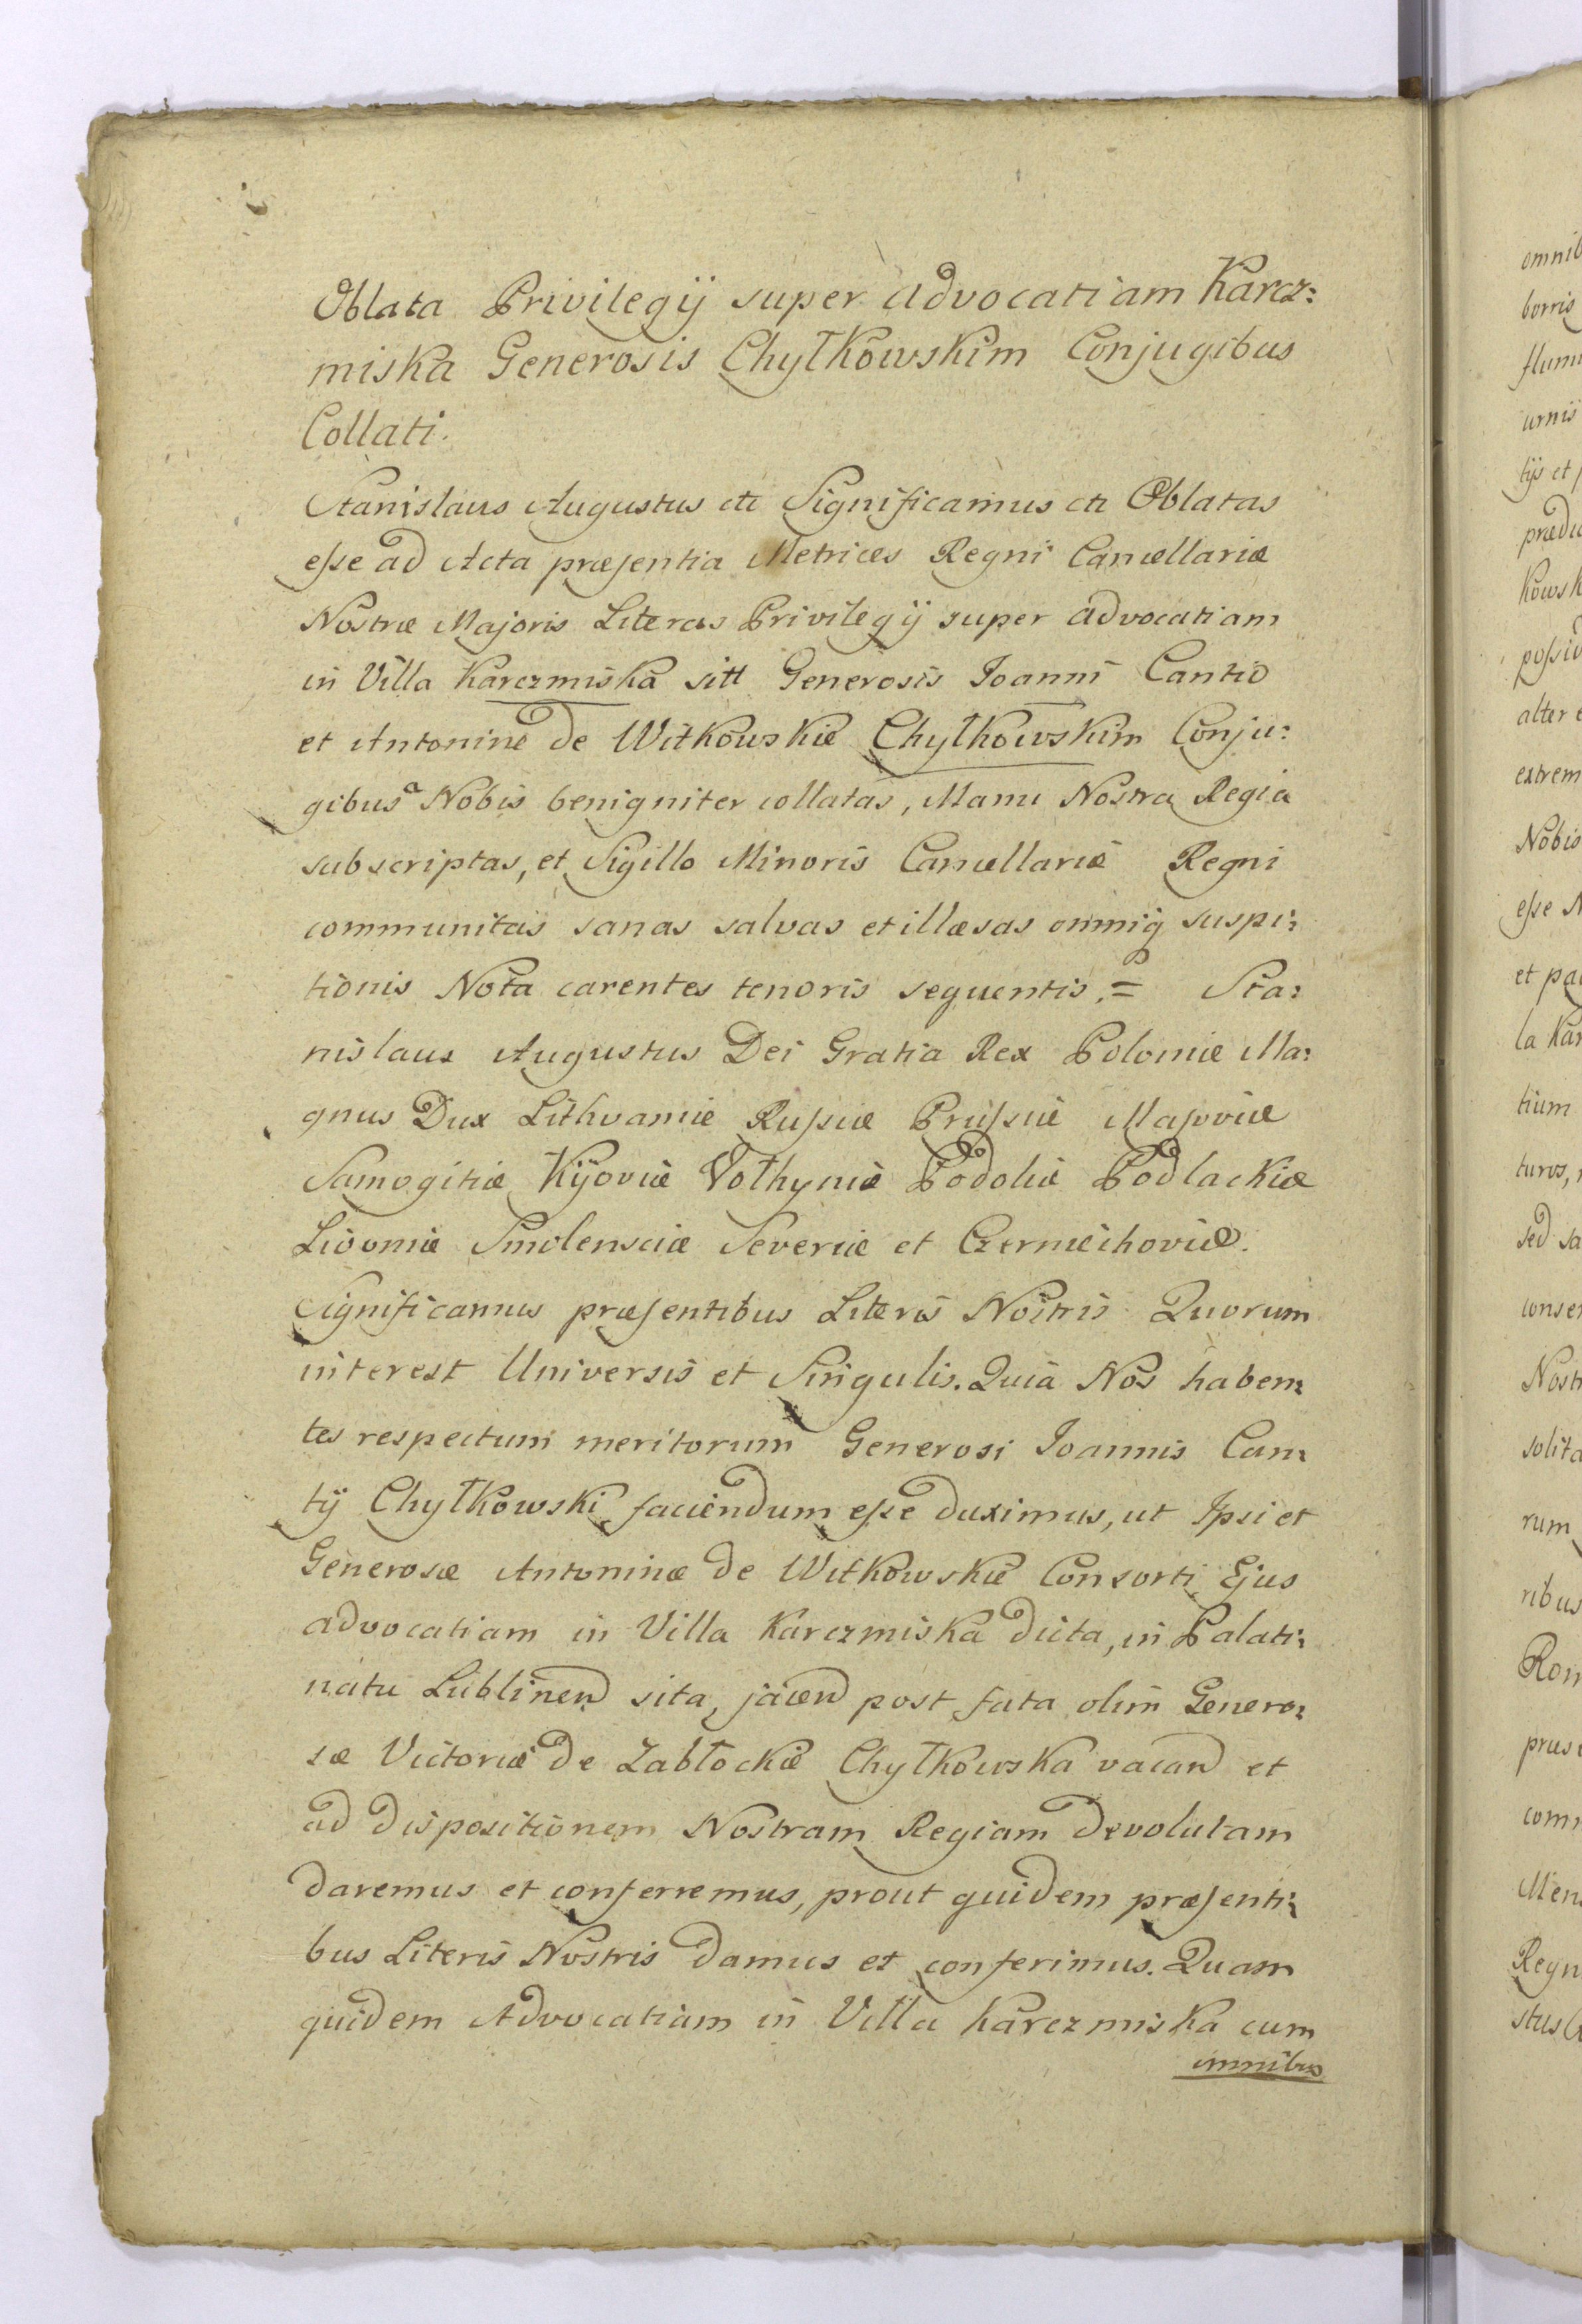 Oblata Privilegij super advocatiam Karcz:
miska Generosis Chyłkowskim Conjugibus
Collati.
Stanislaus Augustus etc Significamus etc Oblatas
esse ad Acta præsentia Metrices Regni Cancellariæ
Nostræ Majoris Literas Privilegij super advocatiam
in Villa Karczmiska sitt Generosis Joanni Cantio
et Antoninæ de Witkowskie Chyłkowskim Conju:
gibus a Nobis benigniter collatas, Manu Nostra Regia
subscriptas, et Sigillo Minoris Cancellariæ Regni
communitas sanas salvas et illæsas omniq suspi:
tionis Nota carentes tenoris sequentis. = Sta:
nislaus Augustus Dei Gratia Rex Poloniæ Ma:
gnus Dux Lithvaniæ Russiæ Prussiæ Masoviæ
Samogitiæ Kijoviæ Volhyniæ Podoliæ Podlachiæ
Livoniæ Smolensciæ Severiæ et Czerniechoviæ.
Significamus præsentibus Literis Nostris Quorum
interest Universis et Singulis. Quia Nos haben:
tes respectum meritorum Generosi Joannis Can:
tij Chyłkowski faciendum esse duximus, ut Ipsi et
Generosæ Antoninæ de Witkowskie Consorti Ejus
advocatiam in Villa Karczmiska dicta, in Palati:
natu Lublinen sita, jacen post fata olim Genero:
sæ Victoriæ de Zabłockie Chyłkowska vacan et
ad dispositionem Nostram Regiam devolutam
daremus et conferremus, prout quidem præsenti:
bus Literis Nostris damus et conferimus. Quam
quidem Advocatiam in Villa Karczmiska cum
omnibus
omnib
borris
flum
urnis
tijs et
prædic
kowsk
possid
alter
extrem
Nobis
esse N
et pa
la Kar
tium
turos,
sed sa
conser
Nostr
solita
rum
ribus
Rom
comm
Regn
stus